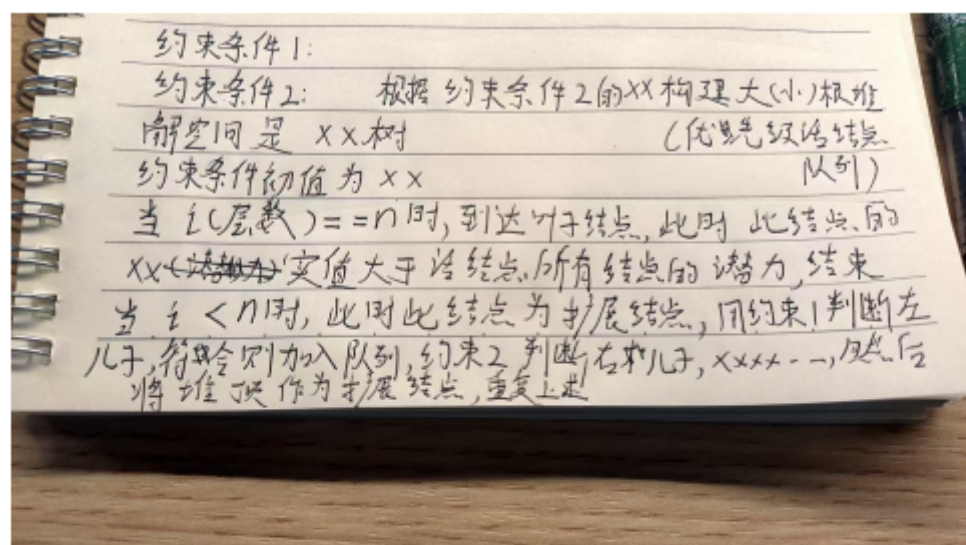 约束条件1:
约束条件2: 根据约束条件2的xx构建大(小)根堆
解空间是 xx树 (优先级活结点
约束条件初值为 xx 队列)
当 i(层数)==n时,到达叶子结点,此时此结点的
xx(潜力)实值大于活结点所有结点的潜力,结束
当 i<n时,此时此结点为扩展结点,用约束1判断左
儿子,符合则加入队列,约束2判断右儿子,xxxx---,然后
将堆顶作为扩展结点,重复上述